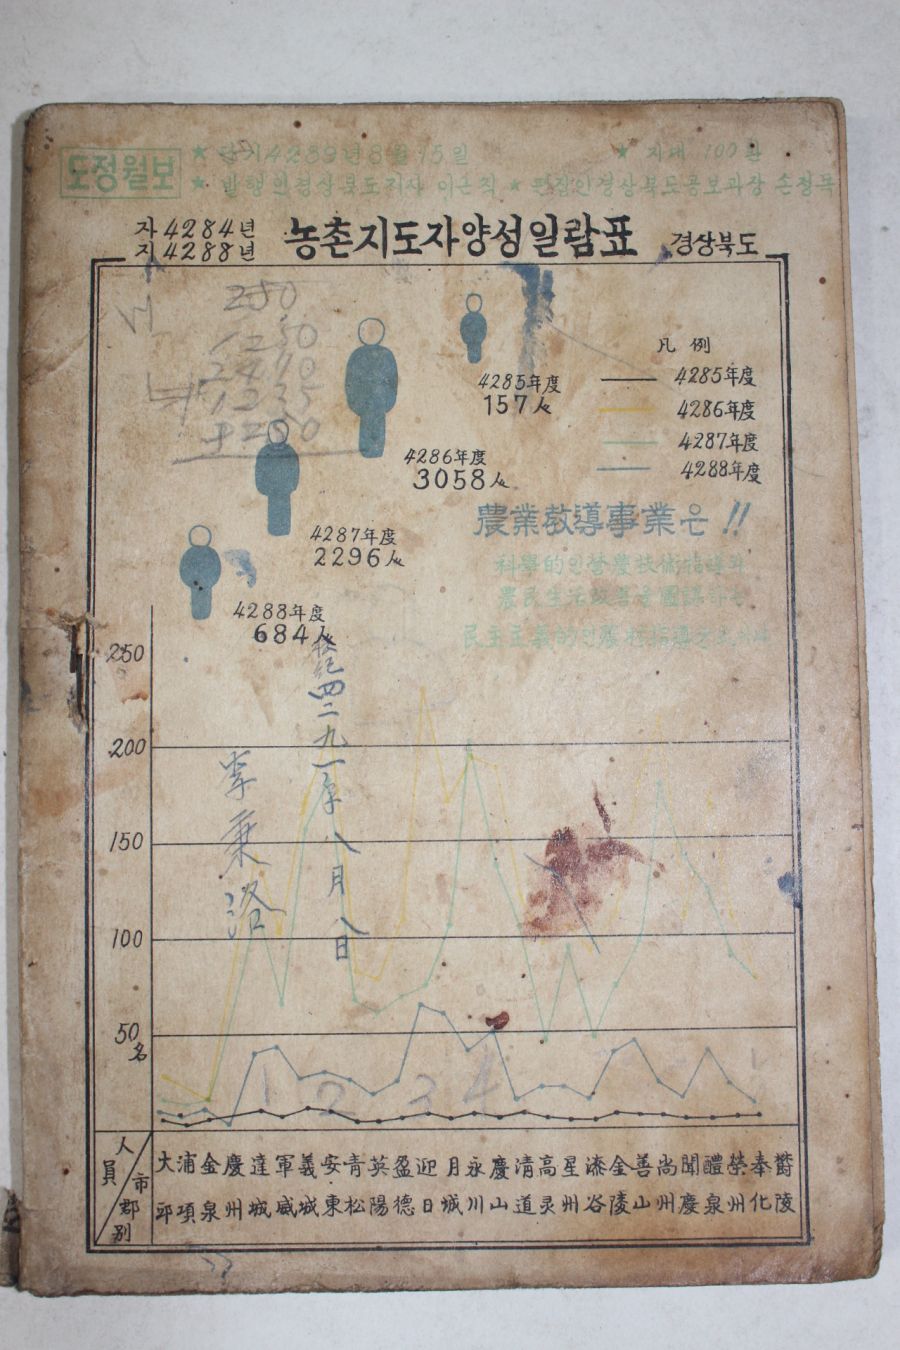 도정월보
★ 단기4289년8월15일 ★ 지대 100환
★ 발행인경상북도지사 이근직 ★ 편집인경상북도공보과장 손정목
자 4284년
지 4288년
농촌지도자양성일람표 경상북도
250
凡例
4285年度
4286年度
4287年度
4288年度
4285年度
157人
4286年度
3058人
4287年度
2296人
4288年度
684人
農業教導事業은 !!
科學的인營農技術指導와
農民生活改善을圖謀하는
民主主義的인農村指導
檀紀四二九一年八月八日
李秉洛
250
200
150
100
50
名
1 2 3 4
人員
市郡別
大邱
浦項
金泉
慶州
達城
軍威
義城
安東
青松
英陽
盈德
迎日
月城
永川
慶山
清道
高灵
星州
漆谷
金陵
善山
尚州
聞慶
醴泉
榮州
奉化
欝陵